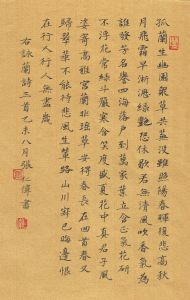 孤蘭生幽園眾草共蕪沒雖照陽春暉復悲高秋
月飛霜早淅瀝綠艷恐休歇若無清風吹香氣為
誰發名譽四海落戶到萬家葉立含正氣花研
不浮花常綿斗嚴寒含笑度盛夏花中真君子風
姿寄高雅蘭非瑤草安得春長在回首春又
歸翠華不能待悲風生輦路山川寂已晦邊恨
在行人行人無盡歲
右詠蘭詩三首乙未八月張偉書